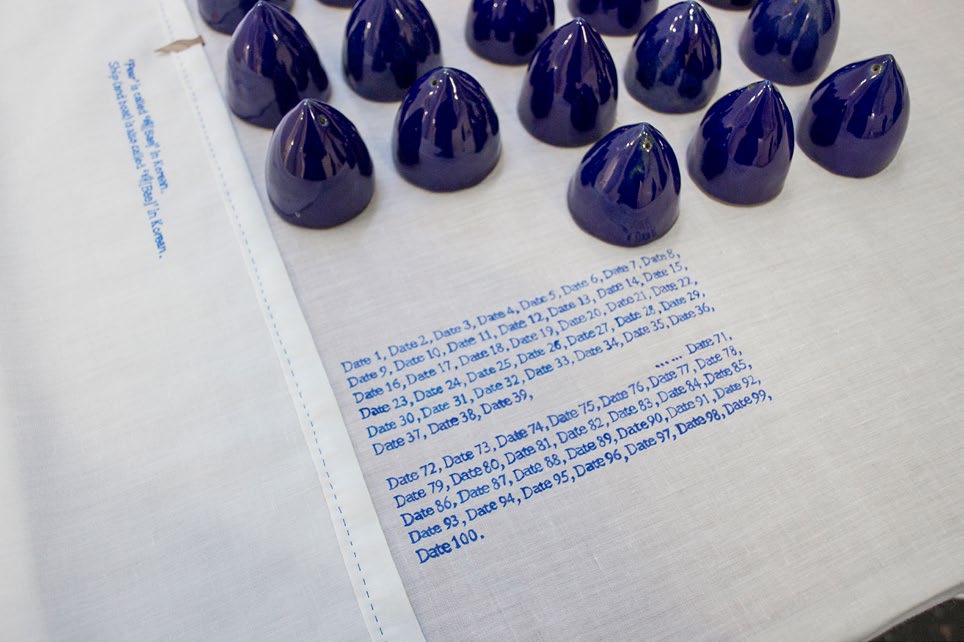 "Pear" is called "배[Bae]" in Korean.
Ship (and boat) is also called "배[Bae]" in Korean.
Date 1, Date 2, Date 3, Date 4, Date 5, Date 6, Date 7, Date 8,
Date 9, Date 10, Date 11, Date 12, Date 13, Date 14, Date 15,
Date 16, Date 17, Date 18, Date 19, Date 20, Date 21, Date 22,
Date 23, Date 24, Date 25, Date 26, Date 27, Date 28, Date 29,
Date 30, Date 31, Date 32, Date 33, Date 34, Date 35, Date 36,
Date 37, Date 38, Date 39,
...... Date 71,
Date 72, Date 73, Date 74, Date 75, Date 76, Date 77, Date 78,
Date 79, Date 80, Date 81, Date 82, Date 83, Date 84, Date 85,
Date 86, Date 87, Date 88, Date 89, Date 90, Date 91, Date 92,
Date 93, Date 94, Date 95, Date 96, Date 97, Date 98, Date 99,
Date 100.